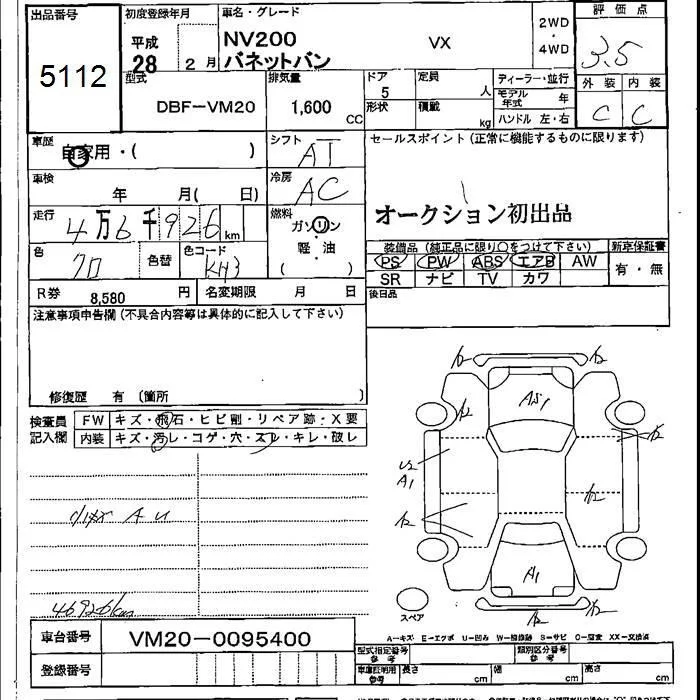 出品番号 初度登録年月 車名・グレード 2WD・4WD 評価点
5112 平成28 2月 NV200 バネットバン VX 3.5
型式 排気量 ドア 定員 ディーラー・並行 外装 内装
DBF-VM20 1,600 CC 5 人 モデル年式 年 C C
形状 積載 kg ハンドル 左・右
車歴 自家用・( ) シフト AT セールスポイント(正常に機能するものに限ります)
車検 年 月( 日) 冷房 AC
オークション初出品
走行 4万6千926km 燃料 ガソリン・軽・油 ( )
装備品(純正品に限り○をつけて下さい) 新車保証書
色 クロ 色替 色コード KH3
PS PW ABS エアB AW 有・無
SR ナビ TV カワ
R券 8,580 円 名変期限 月 日 後日品
注意事項申告欄(不具合内容等は具体的に記入して下さい)
修復歴 有 (箇所 )
検査員記入欄 FW キズ・飛石・ヒビ割・リペア跡・X要
内装 キズ・汚レ・コゲ・穴・スレ・キレ・破レ
A U
46926km
AS1
U2
A1
A1
スペア
車台番号 VM20-0095400
A-キズ E-エクボ U-凹み W-補修跡 S-サビ C-腐食 XX-交換済
型式指定番号 参考 類別区分番号 参考
登録番号 車庫証明用 参考 長さ cm 幅 cm 高さ cm